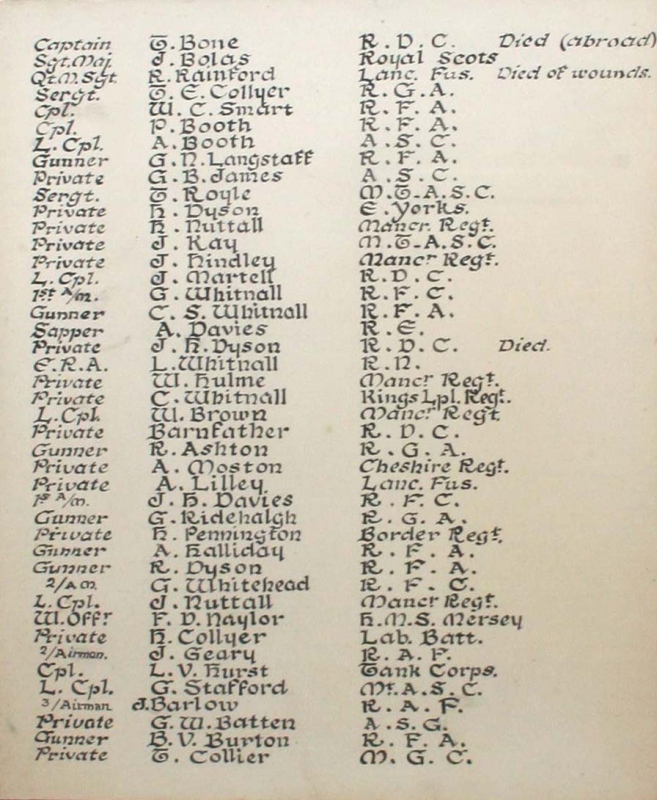 Captain T. Bone R. D. C. Died (abroad)
Sgt. Maj. J. Bolas Royal Scots
Qt. M. Sgt. R. Rainford Lanc. Fus. Died of wounds.
Sergt. T. E. Collyer R. G. A.
Cpl. W. C. Smart R. F. A.
Cpl. P. Booth R. F. A.
L. Cpl. A. Booth A. S. C.
Gunner G. N. Langstaff R. F. A.
Private G. B. James A. S. C.
Sergt. T. Royle M. T-A. S. C.
Private H. Dyson E. Yorks.
Private H. Nuttall Mancr. Regt.
Private J. Kay M. T-A. S. C.
Private J. Hindley Mancr Regt.
L. Cpl. J. Martell R. D. C.
1st A/m. G. Whitnall R. F. C.
Gunner C. S. Whitnall R. F. A.
Sapper A. Davies R. E.
Private J. H. Dyson R. D. C. Died.
E. R. A. L. Whitnall R. N.
Private W. Hulme Mancr Regt.
Private C. Whitnall Kings Lpl. Regt.
L. Cpl. W. Brown Mancr Regt
Private Barnfather R. D. C.
Gunner R. Ashton R. G. A.
Private A. Moston Cheshire Regt.
Private A. Lilley Lanc. Fus.
1st A/m. J. H. Davies R. F. C.
Gunner G. Ridehalgh R. G. A.
Private H. Pennington Border Regt.
Gunner A. Halliday R. F. A.
Gunner R. Dyson R. F. A.
2/A m. G. Whitehead R. F. C.
L. Cpl. J. Nuttall Mancr Regt.
W. Offr F. D. Naylor H. M. S. Mersey
Private H. Collyer Lab. Batt.
2/Airman. J. Geary R. A. F.
Cpl. L. V. Hurst Tank Corps.
L. Cpl. G. Stafford Mt. A. S. C.
3/Airman J. Barlow R. A. F.
Private G. W. Batten A. S. G.
Gunner B. V. Burton R. F. A.
Private T. Collier M. G. C.